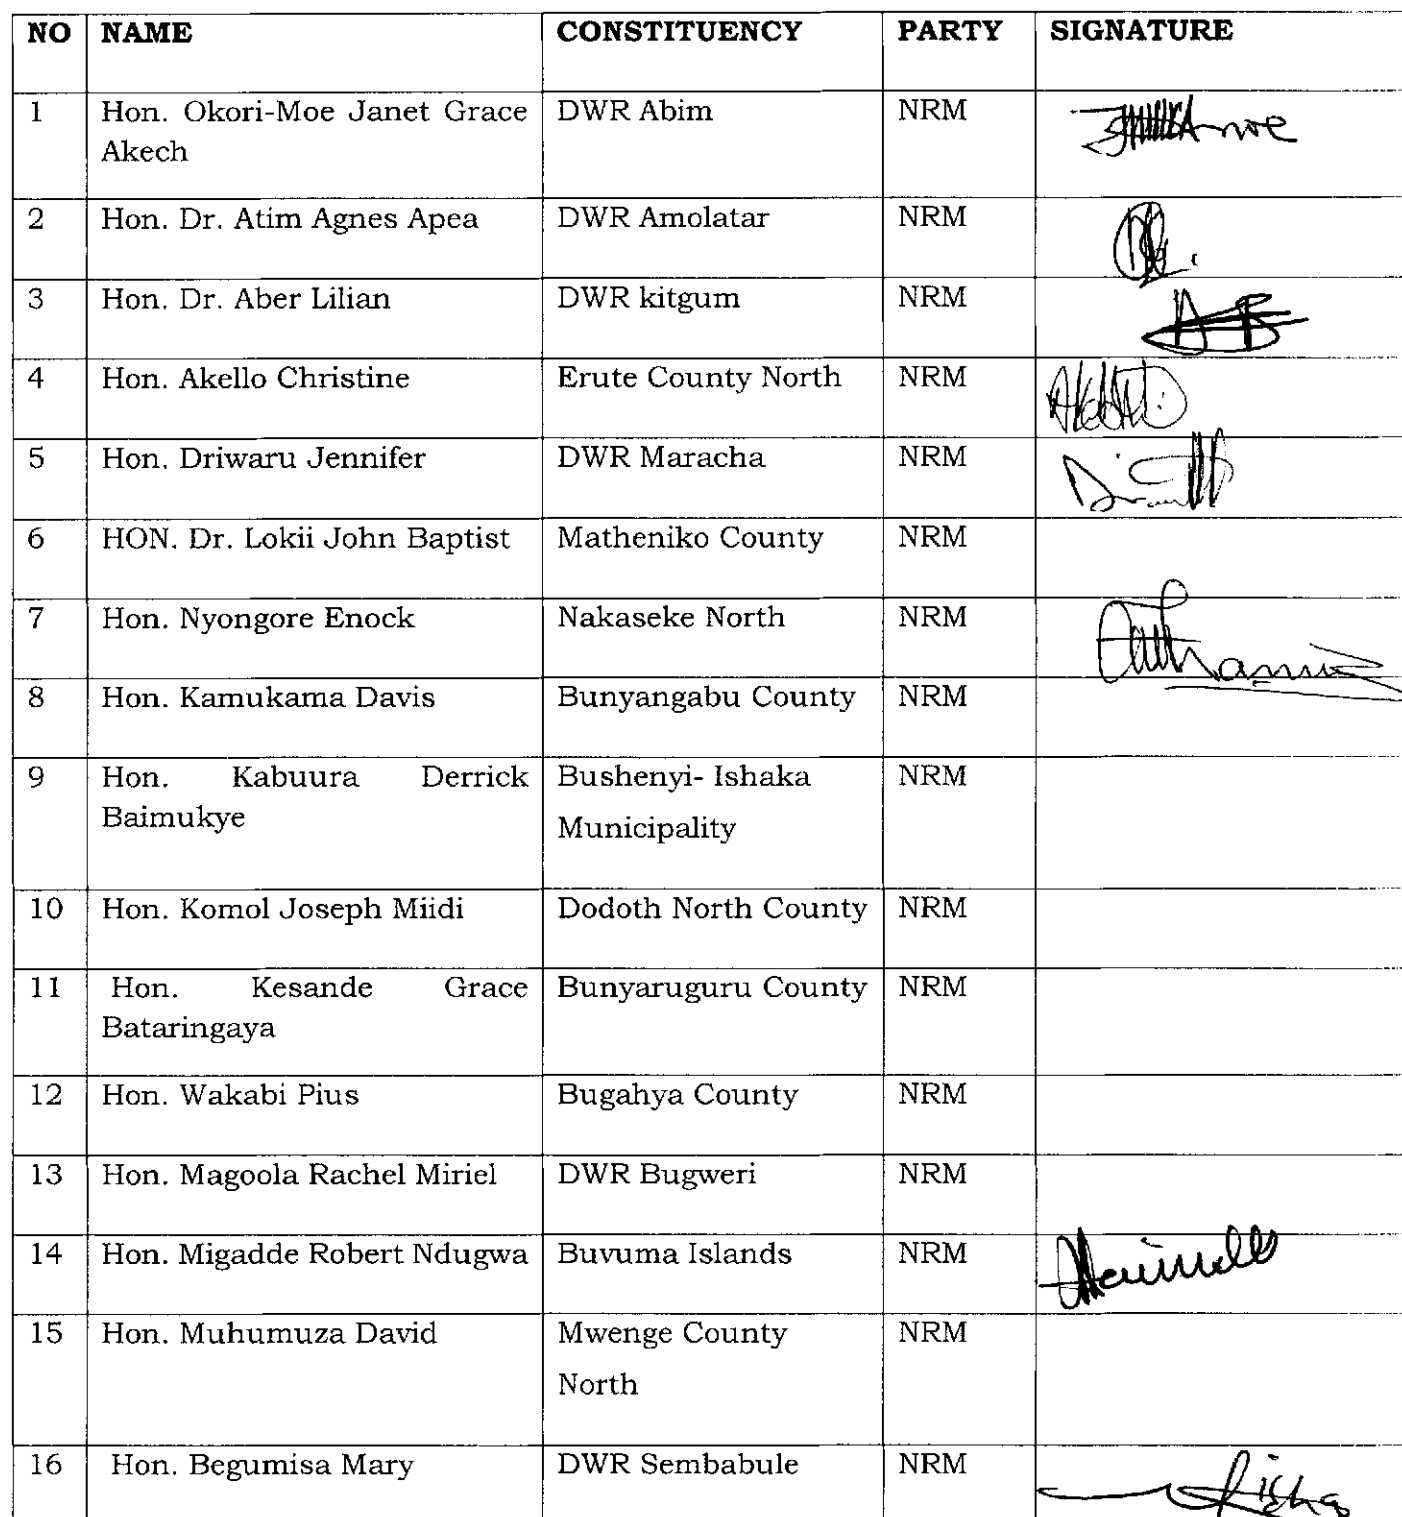 NO NAME CONSTITUENCY PARTY SIGNATURE
1 Hon. Okori-Moe Janet Grace DWR Abim NRM
Akech
2 Hon. Dr. Atim Agnes Apea DWR Amolatar NRM
3 Hon. Dr. Aber Lilian DWR kitgum NRM
4 Hon. Akello Christine Erute County North NRM
5 Hon. Driwaru Jennifer DWR Maracha NRM
6 HON. Dr. Lokii John Baptist Matheniko County NRM
7 Hon. Nyongore Enock Nakaseke North NRM
8 Hon. Kamukama Davis Bunyangabu County NRM
9 Hon. Kabuura Derrick Bushenyi- Ishaka NRM
Baimukye Municipality
10 Hon. Komol Joseph Miidi Dodoth North County NRM
11 Hon. Kesande Grace Bunyaruguru County NRM
Bataringaya
12 Hon. Wakabi Pius Bugahya County NRM
13 Hon. Magoola Rachel Miriel DWR Bugweri NRM
14 Hon. Migadde Robert Ndugwa Buvuma Islands NRM
15 Hon. Muhumuza David Mwenge County NRM
North
16 Hon. Begumisa Mary DWR Sembabule NRM